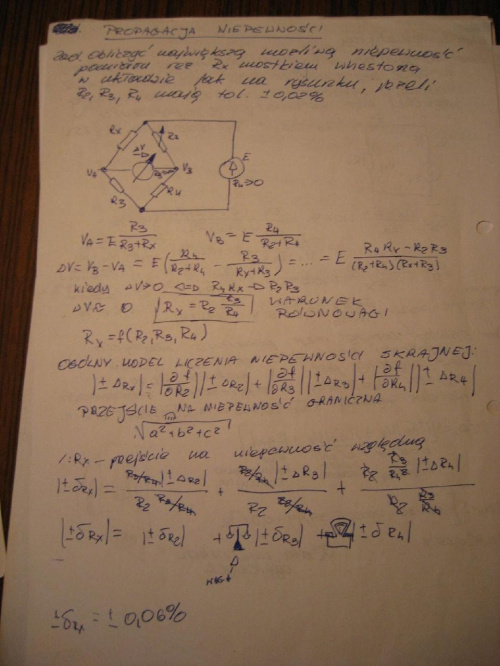 PROPAGACJA NIEPEWNOŚCI
Zad. Obliczyć największą możliwą niepewność
pomiaru rez Rx mostkiem Whestona
w układzie jak na rysunku, jeżeli
R2, R3, R4 mają tol. ±0,02%
Rx R2
ΔV
VA VB E
R3 R4 →0
VA = E R3/(R3+Rx) VB = E R4/(R2+R4)
ΔV = VB - VA = E (R4/(R2+R4) - R3/(Rx+R3)) = ... = E (R4Rx - R2R3)/((R2+R4)(Rx+R3))
kiedy ΔV→0 <=> R4Rx → R2R3
ΔV ≈ 0 Rx = R2 R3/R4 WARUNEK RÓWNOWAGI
Rx = f(R2, R3, R4)
OGÓLNY MODEL LICZENIA NIEPEWNOŚCI SKRAJNEJ:
|±ΔRx| = |∂f/∂R2| |±ΔR2| + |∂f/∂R3| |±ΔR3| + |∂f/∂R4| |±ΔR4|
PRZEJŚCIE NA NIEPEWNOŚĆ GRANICZNA
√(a²+b²+c²)
/:Rx - przejście na niepewność względną
|±δRx| = R3/R4 |±ΔR2| / (R2 R3/R4) + R2/R4 |±ΔR3| / (R2 R3/R4) + R2 R3/R4² |±ΔR4| / (R2 R3/R4)
|±δRx| = |±δR2| + |±δR3| + |±δR4|
±δRx = ±0,06%